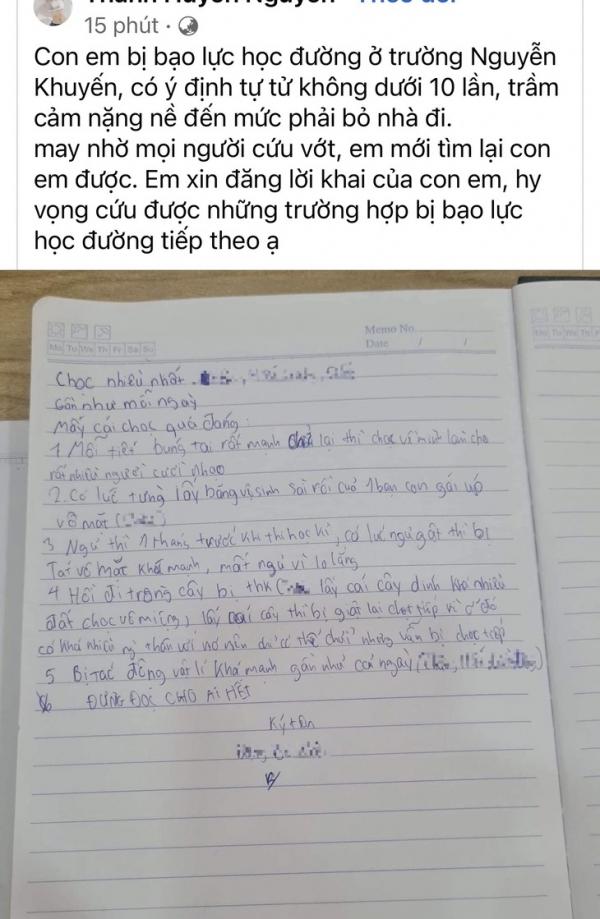 15 phút ·
Con em bị bạo lực học đường ở trường Nguyễn
Khuyến, có ý định tự tử không dưới 10 lần, trầm
cảm nặng nề đến mức phải bỏ nhà đi.
may nhờ mọi người cứu vớt, em mới tìm lại con
em được. Em xin đăng lời khai của con em, hy
vọng cứu được những trường hợp bị bạo lực
học đường tiếp theo ạ
Memo No.
Date / /
Mo Tu We Th Fr Sa Su
Chọc nhiều nhất
Gần như mỗi ngày
Mấy cái chọc quá đáng:
1 Mỗi tiết búng tai rất mạnh lại thì chọc về làm cho
rất nhiều người cười nhạo
2. Có lúc từng lấy băng vệ sinh sài rồi của 1 bạn con gái úp
vô mặt
3 Ngủ thì 1 tháng trước khi thi học kì, có lúc ngủ gật thì bị
Tát vô mặt khá mạnh, mất ngủ vì lo lắng
4 Hồi đi trồng cây bị thk lấy cái cây dính khá nhiều
đất chọc vô miệng, lấy cây thì bị giật lại chọt tiếp vì ở đó
có khá nhiều thân với nó nên dù có thể chửi nhưng vẫn bị chọc tiếp
5 Bị tác động vật lí khá mạnh gần như cả ngày
6 ĐỪNG ĐỌC CHO AI HẾT
Ký tên